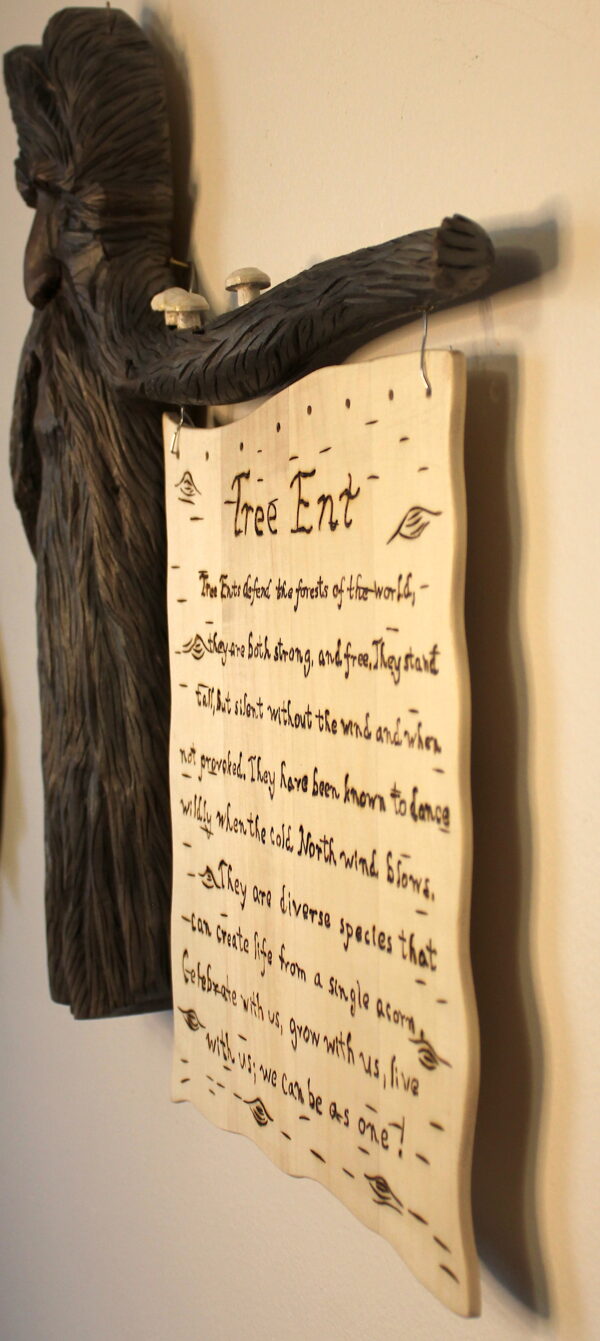 Tree Ent
Tree Ents defend the forests of the world,
they are both strong, and free. They stand
tall, but silent without the wind and when
not provoked. They have been known to dance
wildly when the cold North wind blows.
They are diverse species that
can create life from a single acorn.
Celebrate with us, grow with us, live
with us; we can be as one!